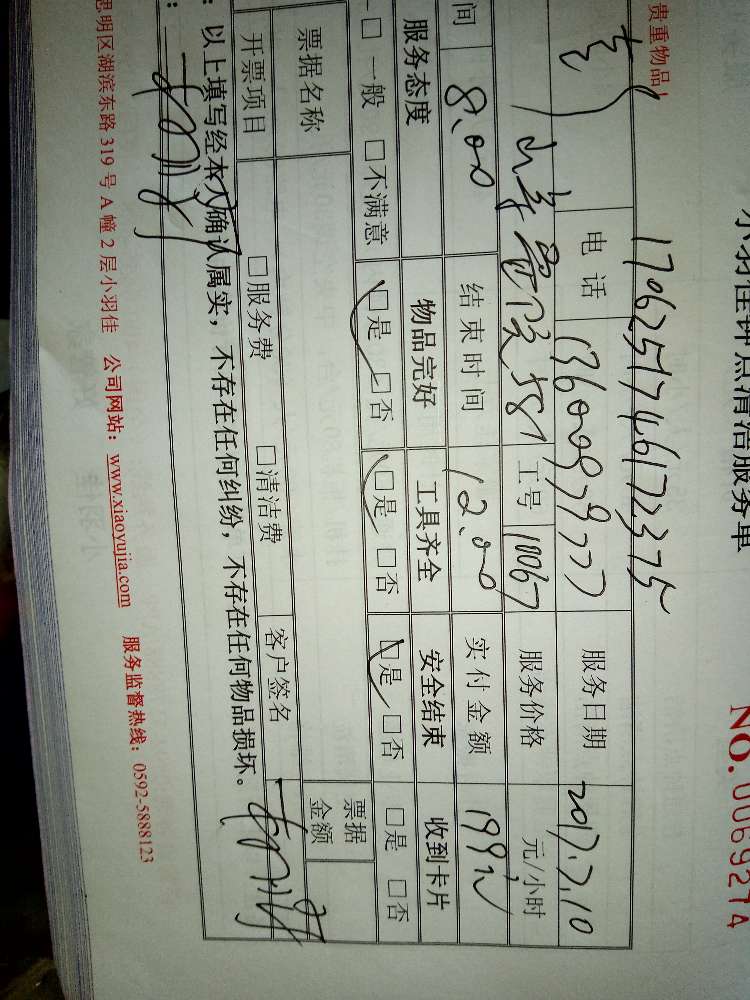 小羽佳钟点清洁服务单
NO.0069274
贵重物品!
1706251746172375
电话 服务日期 2017.7.10
工号 10067 服务价格 元/小时
间 8.00 结束时间 12.00 实付金额 199元
服务态度 物品完好 工具齐全 安全结束 收到卡片
□一般 □不满意 □是 □否 □是 □否 □是 □否 □是 □否
票据名称 票据金额
开票项目 □服务费 □清洁费 客户签名
:以上填写经本人确认属实,不存在任何纠纷,不存在任何物品损坏。
思明区湖滨东路319号A幢2层小羽佳 公司网站:www.xiaoyujia.com 服务监督热线:0592-5888123